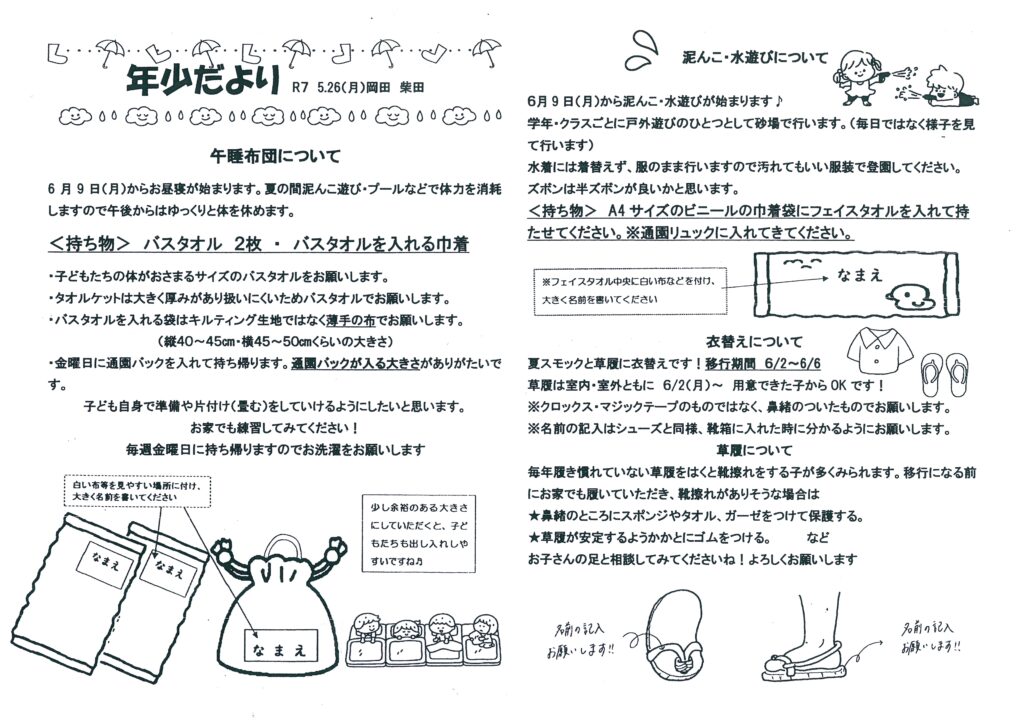 年少だより R7 5.26(月)岡田 柴田
午睡布団について
6月9日(月)からお昼寝が始まります。夏の間泥んこ遊び・プールなどで体力を消耗
しますので午後からはゆっくりと体を休めます。
<持ち物> バスタオル 2枚 ・ バスタオルを入れる巾着
・子どもたちの体がおさまるサイズのバスタオルをお願いします。
・タオルケットは大きく厚みがあり扱いにくいためバスタオルでお願いします。
・バスタオルを入れる袋はキルティング生地ではなく薄手の布でお願いします。
(縦40~45㎝・横45~50㎝くらいの大きさ)
・金曜日に通園バックを入れて持ち帰ります。通園バックが入る大きさがありがたいで
す。
子ども自身で準備や片付け(畳む)をしていけるようにしたいと思います。
お家でも練習してみてください!
毎週金曜日に持ち帰りますのでお洗濯をお願いします
白い布等を見やすい場所に付け、
大きく名前を書いてください
なまえ
なまえ
なまえ
少し余裕のある大きさ
にしていただくと、子ど
もたちも出し入れしや
すいですね♫
泥んこ・水遊びについて
6月9日(月)から泥んこ・水遊びが始まります♪
学年・クラスごとに戸外遊びのひとつとして砂場で行います。(毎日ではなく様子を見
て行います)
水着には着替えず、服のまま行いますので汚れてもいい服装で登園してください。
ズボンは半ズボンが良いかと思います。
<持ち物> A4サイズのビニールの巾着袋にフェイスタオルを入れて持
たせてください。※通園リュックに入れてきてください。
※フェイスタオル中央に白い布などを付け、
大きく名前を書いてください
なまえ
衣替えについて
夏スモックと草履に衣替えです!移行期間 6/2~6/6
草履は室内・室外ともに 6/2(月)~ 用意できた子からOKです!
※クロックス・マジックテープのものではなく、鼻緒のついたものでお願いします。
※名前の記入はシューズと同様、靴箱に入れた時に分かるようにお願いします。
草履について
毎年履き慣れていない草履をはくと靴擦れをする子が多くみられます。移行になる前
にお家でも履いていただき、靴擦れがありそうな場合は
★鼻緒のところにスポンジやタオル、ガーゼをつけて保護する。
★草履が安定するようかかとにゴムをつける。 など
お子さんの足と相談してみてくださいね!よろしくお願いします
名前の記入
お願いします!!
名前の記入
お願いします!!